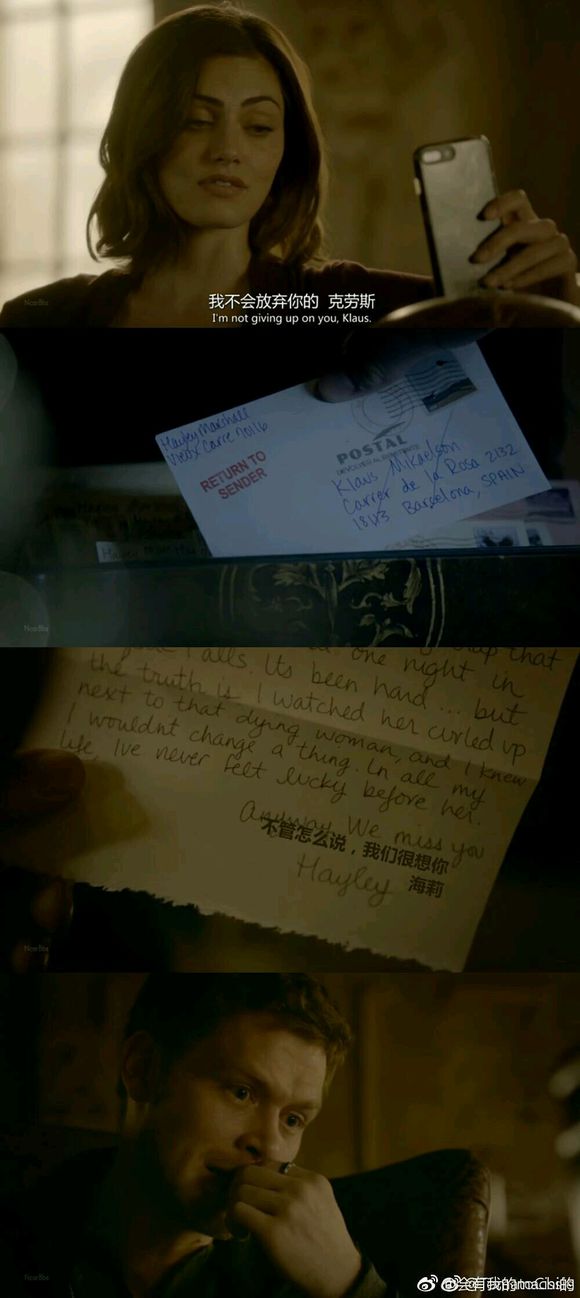 我不会放弃你的 克劳斯
I'm not giving up on you, Klaus.
Hayley Marshall
Vieux Carre 70116
RETURN TO
SENDER
POSTAL
Klaus Mikaelson
Carrer de la Rosa 2132
Barcelona, SPAIN
that
one night in
Falls. Its been hard... but
the truth is I watched her curled up
next to that dying woman, and I knew
I wouldnt change a thing. In all my
life, Ive never felt lucky before her.
Anyway. We miss you
不管怎么说，我们很想你
Hayley
海莉